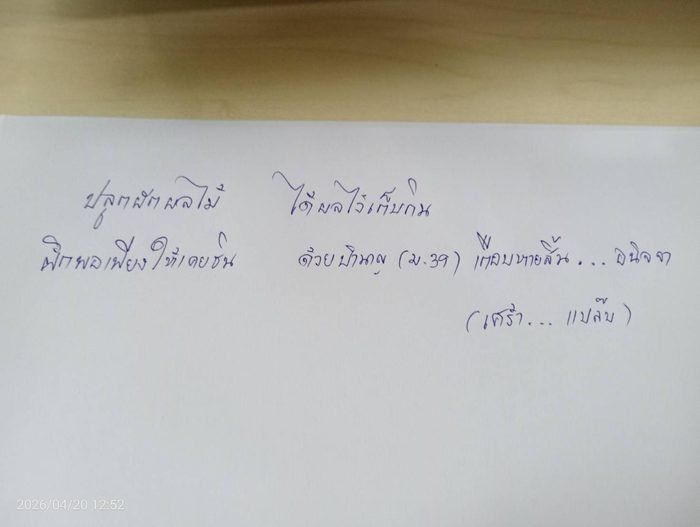 ปลูกผักผลไม้ ได้ผลไว้เก็บกิน
ฝึกพอเพียงให้เคยชิน ด้วยบำนาญ (ม.39) เกือบหายสิ้น... อนิจจา
(เศร้า... แปล๊บ)
2026/04/20 12:52